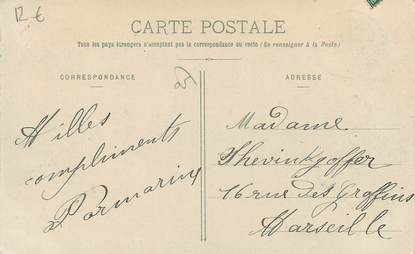 12 €
CARTE POSTALE
Tous les pays étrangers n'acceptent pas la correspondance au recto (Se renseigner à la Poste)
CORRESPONDANCE
ADRESSE
Milles
compliments
Madame
16 rue des
Marseille